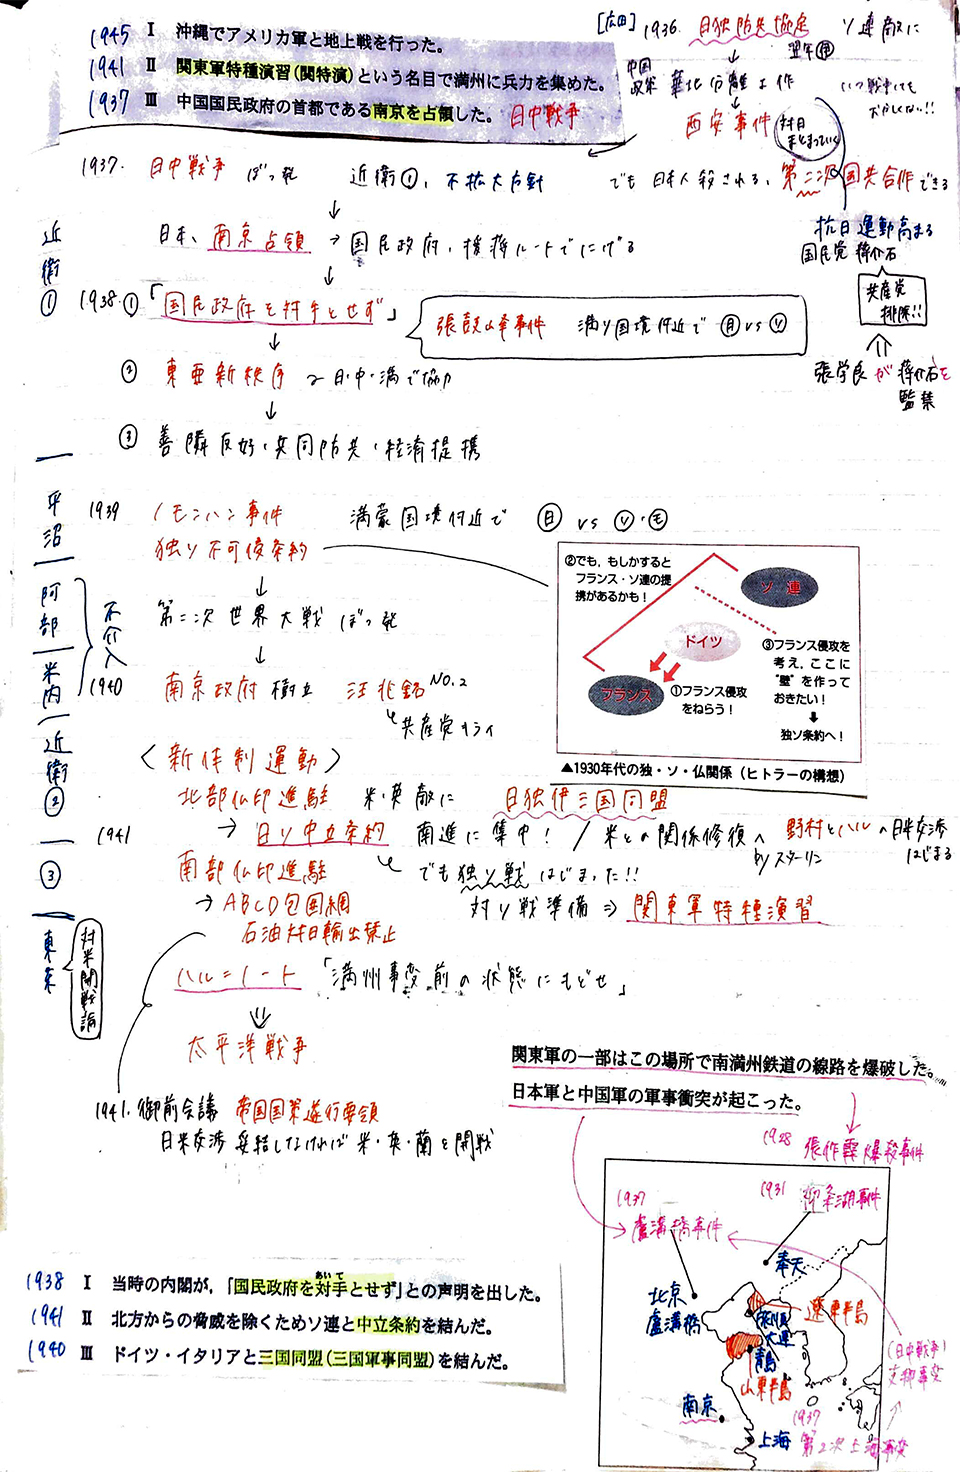 1945 Ⅰ 沖縄でアメリカ軍と地上戦を行った。
1941 Ⅱ 関東軍特種演習(関特演)という名目で満州に兵力を集めた。
1937 Ⅲ 中国国民政府の首都である南京を占領した。 日中戦争
[広田] 1936. 日独防共協定 ソ連敵に
翌年伊
中国政策 華北分離工作 いつ戦争しても
おかしくない!!
西安事件 対日
まとまっていく
1937. 日中戦争 ぼっ発 近衛①、不拡大方針 でも日本人殺される、第二次国共合作できる
抗日運動高まる
国民党 蒋介石
共産党
排除!!
張学良が蒋介石を
監禁
日本、南京占領 → 国民政府、援蒋ルートでにげる
近衛
①
1938.① 「国民政府を対手とせず」
張鼓峰事件 満ソ国境付近で 日 vs ソ
② 東亜新秩序 〜日・中・満で協力
③ 善隣友好・共同防共・経済提携
平沼
1939 ノモンハン事件 満蒙国境付近で 日 vs ソ・モ
独ソ不可侵条約
阿部
不介入
第二次世界大戦 ぼっ発
米内
1940 南京政府樹立 汪兆銘 NO.2
共産党キライ
②でも、もしかすると
フランス・ソ連の提
携があるかも!
ソ 連
ドイツ
フランス
①フランス侵攻
をねらう!
③フランス侵攻を
考え、ここに
“壁”を作って
おきたい!
独ソ条約へ!
▲1930年代の独・ソ・仏関係(ヒトラーの構想)
近衛
②
〈新体制運動〉
北部仏印進駐 米・英敵に 日独伊三国同盟
1941 → 日ソ中立条約 南進に集中! / 米との関係修復へ 野村とハルの日米交渉
はじまる
byスターリン
③
南部仏印進駐 でも独ソ戦はじまった!!
→ ABCD包囲網 対ソ戦準備 ⇒ 関東軍特種演習
石油対日輸出禁止
東条
対米開戦論
ハル=ノート 「満州事変前の状態にもどせ」
太平洋戦争
1941. 御前会議 帝国国策遂行要領
日米交渉 妥結しなければ 米・英・蘭と開戦
関東軍の一部はこの場所で南満州鉄道の線路を爆破した。
日本軍と中国軍の軍事衝突が起こった。
1928 張作霖爆殺事件
1931 柳条湖事件
1937
盧溝橋事件
奉天
北京
盧溝橋
旅順
大連
遼東半島
青島
山東半島
南京
上海
(日中戦争)
支那事変
1937
第2次上海事変
1938 Ⅰ 当時の内閣が,「国民政府を対手とせず」との声明を出した。
あいて
1941 Ⅱ 北方からの脅威を除くためソ連と中立条約を結んだ。
1940 Ⅲ ドイツ・イタリアと三国同盟(三国軍事同盟)を結んだ。